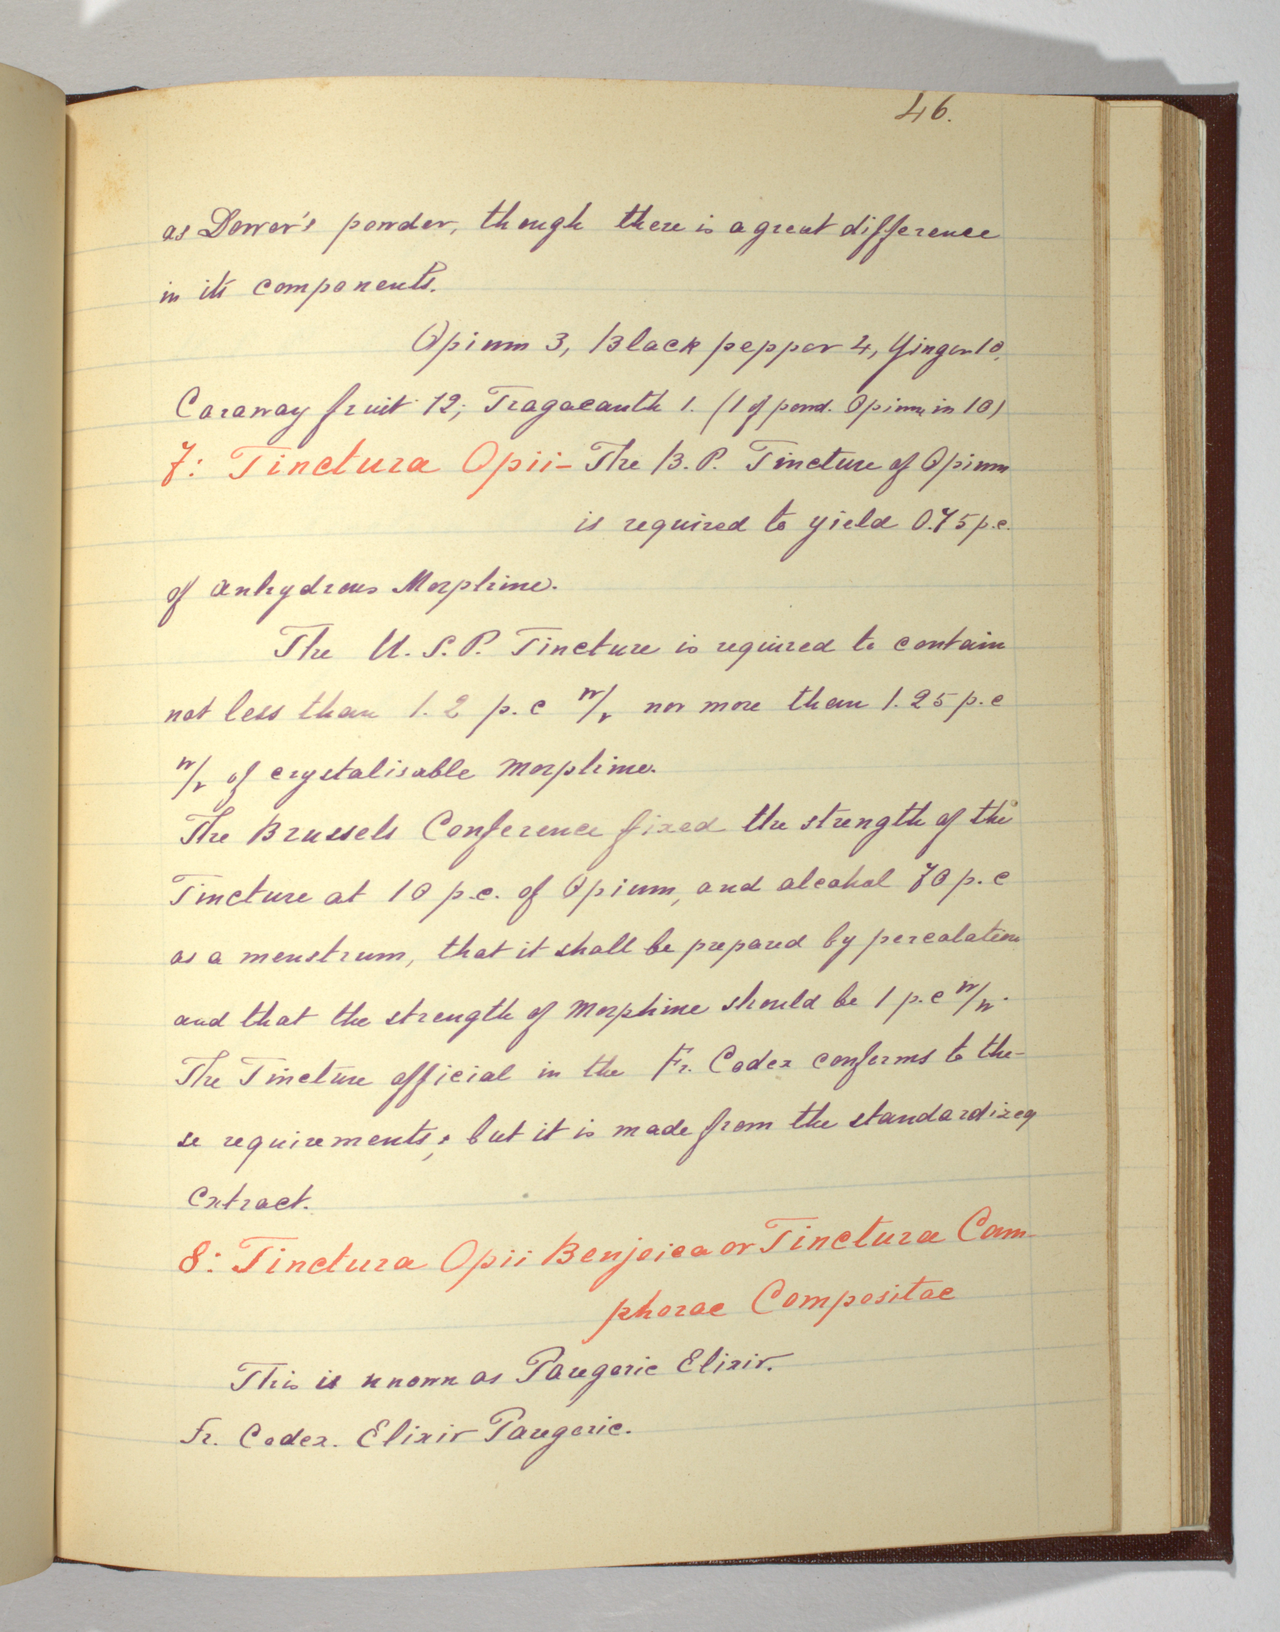 46.
as Dover's powder, though there is a great difference
in its components.
Opium 3, Black pepper 4, Ginger 10,
Caraway fruit 12; Tragacanth 1. (1 of powd. Opium in 10)
7: Tinctura Opii - The B. P. Tincture of Opium
is required to yield 0.75 p.c.
of anhydrous Morphine.
The U. S. P. Tincture is required to contain
not less than 1.2 p.c w/v nor more than 1.25 p.c
w/v of crystalisable morphine.
The Brussels Conference fixed the strength of the
Tincture at 10 p.c. of Opium, and alcohol 70 p.c
as a menstrum, that it shall be prepared by percolation
and that the strength of morphine should be 1 p.c w/w.
The Tincture official in the Fr. Codex conforms to the-
se requirements; but it is made from the standardized
extract.
8: Tinctura Opii Benjoica or Tinctura Cam-
phorae Compositae
This is known as Paregoric Elixir.
Fr. Codex. Elixir Paregoric.